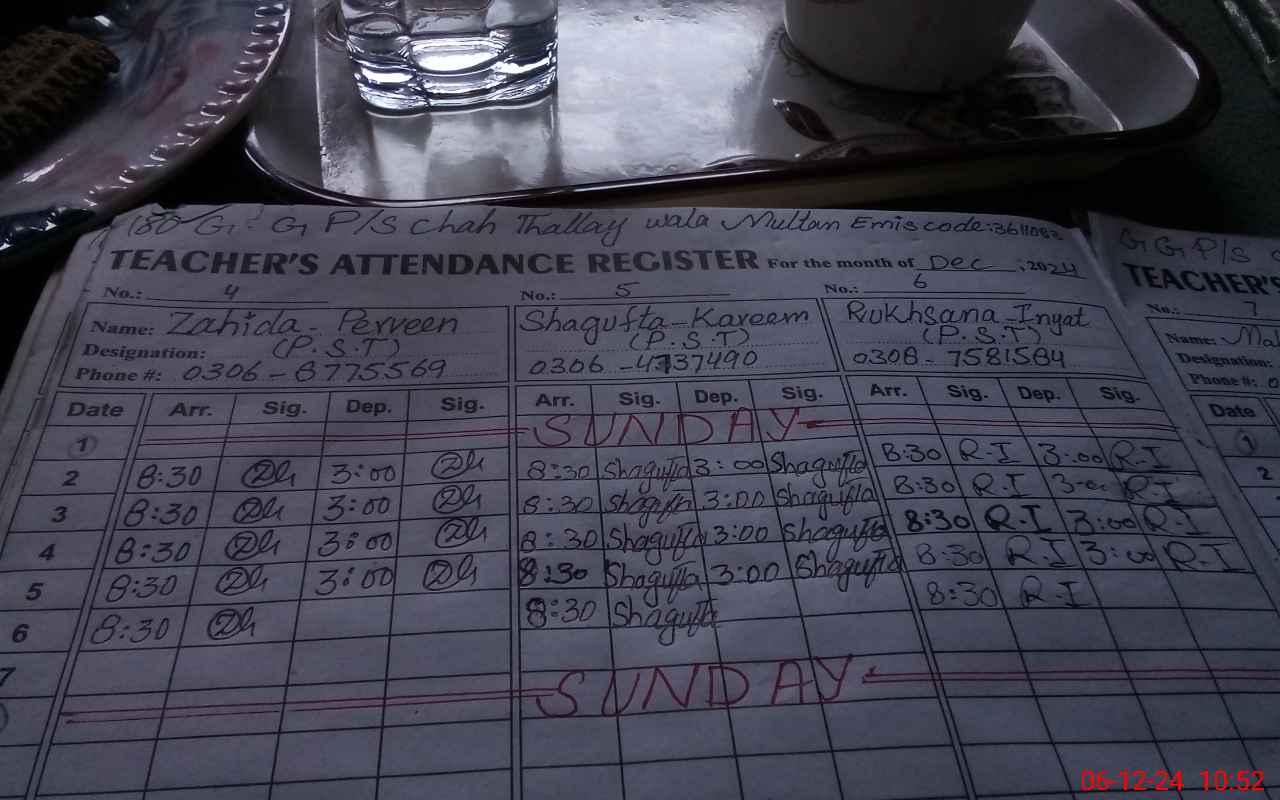 G. G P/S Chah Thallay wala Multan Emis code:3611082
TEACHER'S ATTENDANCE REGISTER For the month of Dec ; 2024
No.: 4 No.: 5 No.: 6
Name: Zahida - Perveen Shagufta - Kareem Rukhsana - Inyat
Designation: (P.S.T) (P.S.T) (P.S.T)
Phone #: 0306 - 8775569 0306 - 4737490 0308 - 7581584
Date Arr. Sig. Dep. Sig. Arr. Sig. Dep. Sig. Arr. Sig. Dep. Sig.
1 SUNDAY
2 8:30 3:00 8:30 Shagufta 3:00 Shagufta 8:30 R-I 3:00 R-I
3 8:30 3:00 8:30 Shagufta 3:00 Shagufta 8:30 R-I 3:00 R-I
4 8:30 3:00 8:30 Shagufta 3:00 Shagufta 8:30 R-I 3:00 R-I
5 8:30 3:00 8:30 Shagufta 3:00 Shagufta 8:30 R-I 3:00 R-I
6 8:30 8:30 Shagufta 8:30 R-I
7
SUNDAY
G G P/S
TEACHER'S
No.: 7
Name:
Designation:
Phone #: 0
Date
1
2
06-12-24 10:52